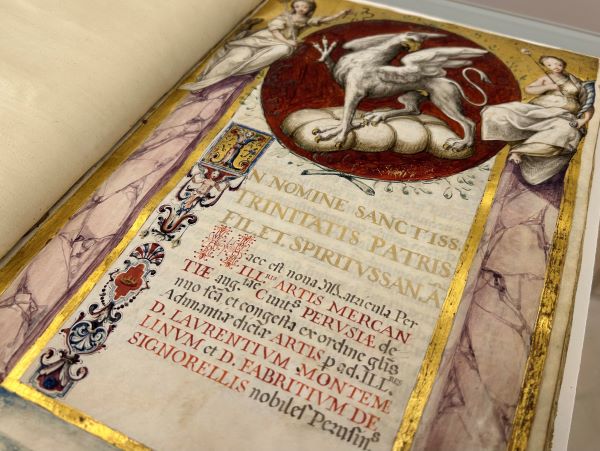 IN NOMINE SANCTISS.
TRINITATIS PATRIS
FIL. ET. SPIRITVSSAN. A
Haec est nona Matricula Per
ILL. ARTIS MERCAN
TIE aug. tae Ciuit. PERVSIÆ de
nuo fca et congesta ex ordine glis
Adunantiæ dictæ ARTIS p ad. ILL. RES
D. LAVRENTIVM MONTEM
LINVM et D. FABRITIVM DE
SIGNORELLIS nobiles Perusin.s